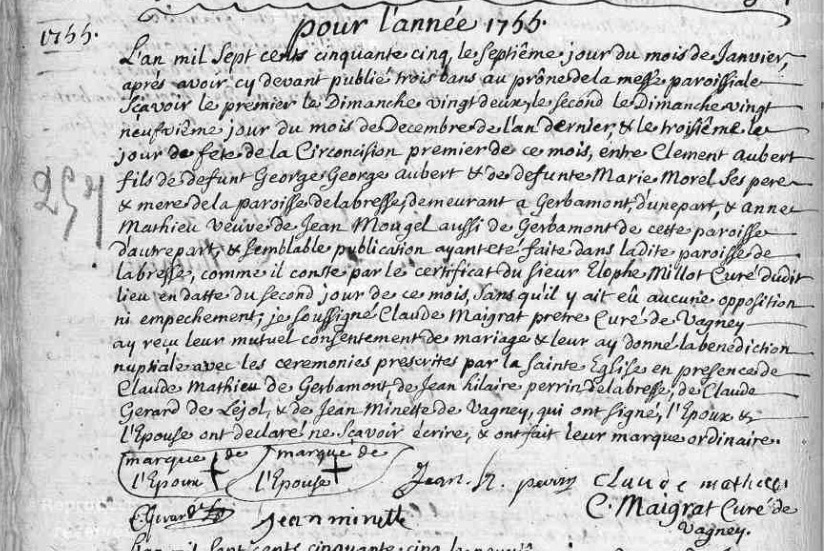 pour l'année 1755.
1755. L'an mil Sept cents cinquante cinq, le Septiême jour du mois de Janvier,
aprés avoir cy devant publié trois bans au prône de la messe paroissiale
Scavoir le premier le Dimanche vingt deux, le Second le Dimanche vingt
neufvième jour du mois de Decembre de l'an dernier, & le troisiême le
jour de fete de la Circoncision premier de ce mois, entre Clement Aubert
fils de defunt George George Aubert & de defunte Marie Morel Ses pere
& mere de la paroisse de labresse, demeurant a Gerbamont, d'une part, & Anne
Mathieu veuve de Jean Mougel aussi de Gerbamont de cette paroisse
257
d'autre part, & Semblable publication ayant eté faite dans la dite paroisse de
labresse, comme il conste par le certificat du Sieur Elophe Millot Curé dudit
lieu en datte du Second jour de ce mois, Sans qu'il y ait eû aucune opposition
ni empechement; je soussigné Claude Maigrat prêtre Curé de Vagney
ay reçu leur mutuel consentement de mariage & leur ay donné la benediction
nuptiale avec les ceremonies prescrites par la Sainte Eglise en presence de
Claude Mathieu de Gerbamont de Jean hilaire perrin de labresse, de Claude
Gerard de Lejol, & de Jean Minette de Vagney, qui ont Signé, l'Epoux &
l'Epouse ont declaré ne Scavoir écrire, & ont fait leur marque ordinaire.
marque de l'Epoux
marque de l'Epouse
Jean. h. perrin Claude mathieu
C. Gerard Jean minette
C. Maigrat Curé de
Vagney.
L'an mil Sept cents cinquante cinq le